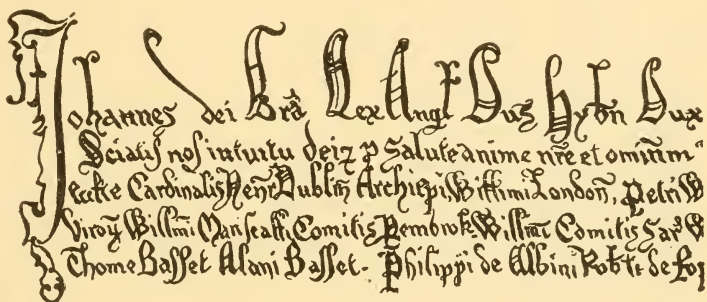 Johannes dei Gra Rex Angl Dns Hybn Dux
Sciatis nos intuitu dei & p salute anime nre et omnium
eccle Cardinalis Henr Dublin Archiepi, Willimi London, Petri W
Viroꝝ Willmi Marscalli, Comitis Pembrok, Willmi Comitis Sar W
Thome Basset Alani Basset. Philippi de Albini Robti de